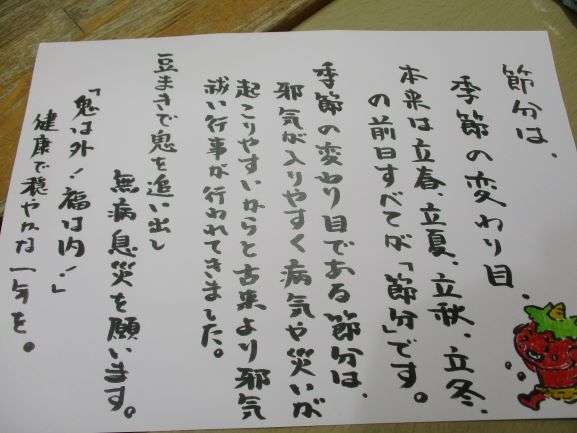 節分は、
季節の変わり目、
本来は立春、立夏、立秋、立冬、
の前日すべてが「節分」です。
季節の変わり目である節分は、
邪気が入りやすく病気や災いが
起こりやすいからと古来より邪気
祓い行事が行われてきました。
豆まきで鬼を追い出し
無病息災を願います。
「鬼は外！福は内！」
健康で穏やかな一年を。